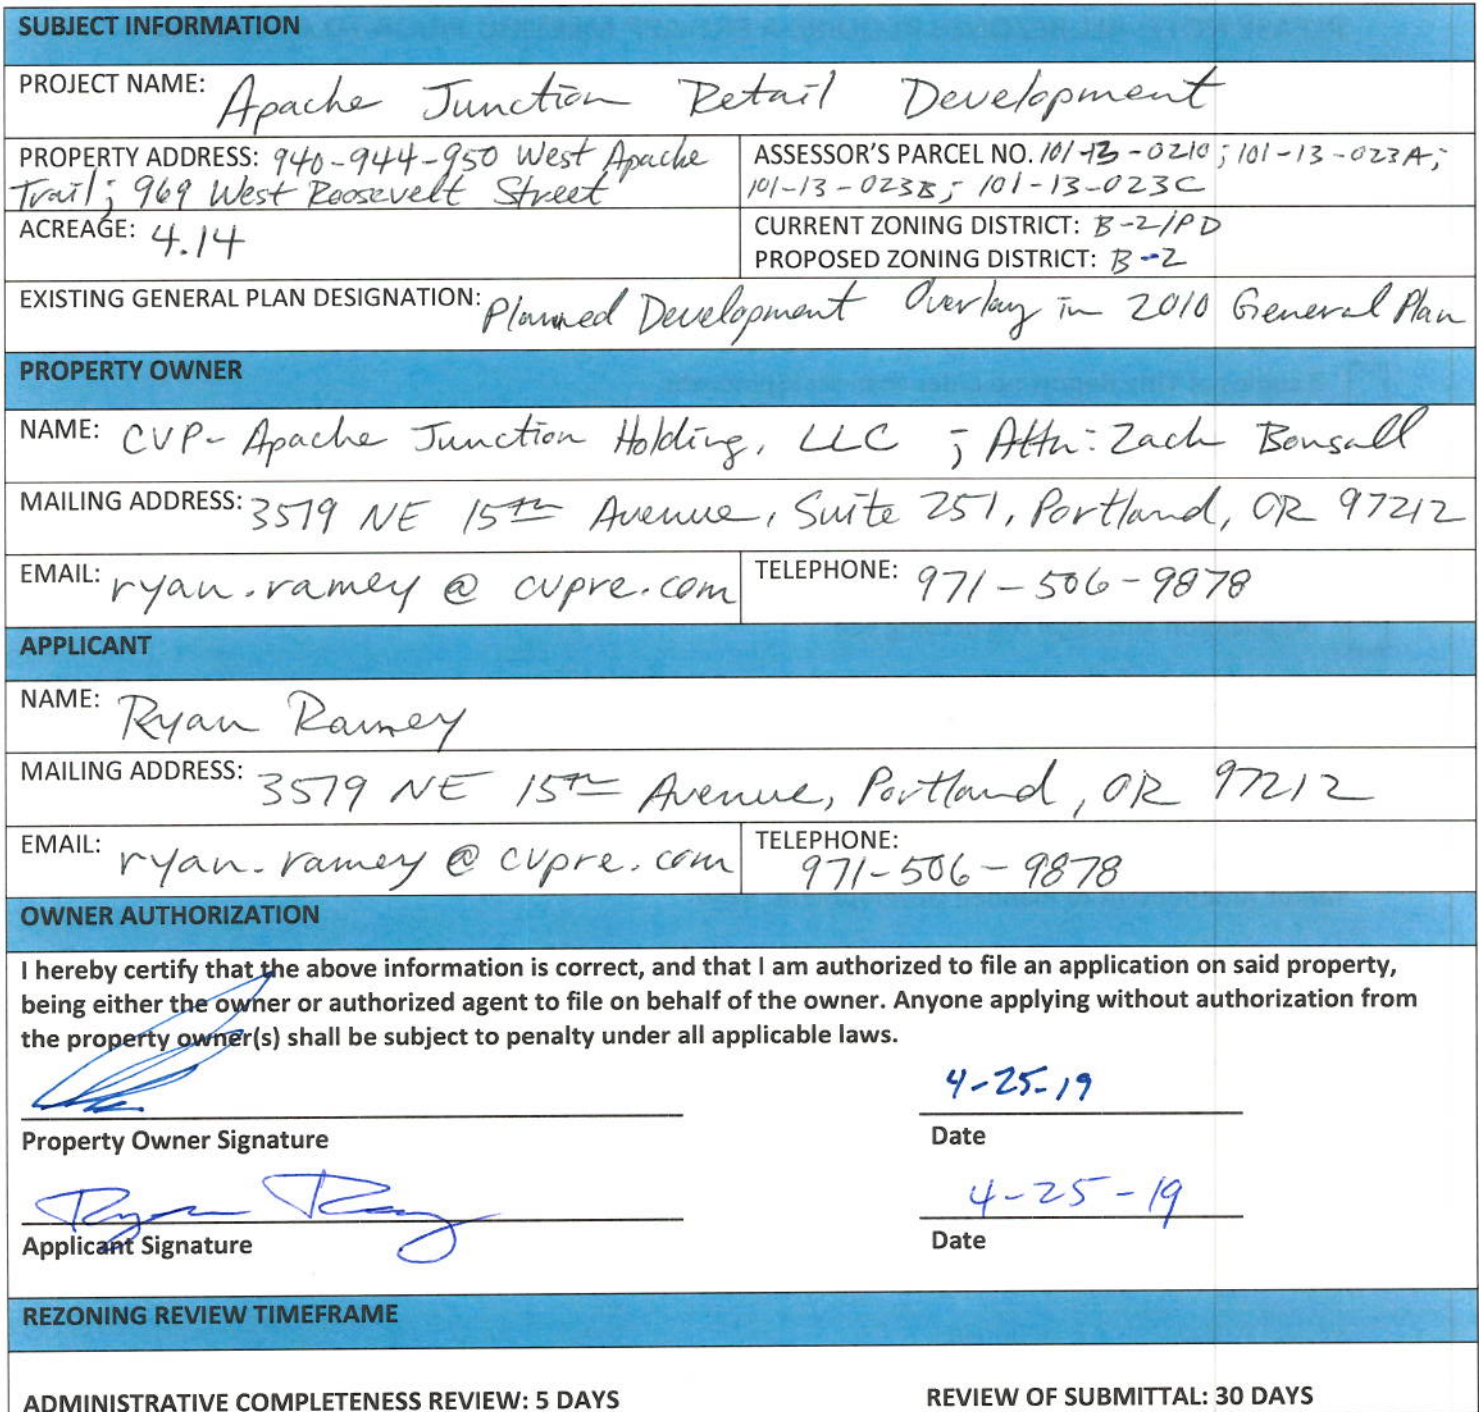 SUBJECT INFORMATION
PROJECT NAME: Apache Junction Retail Development
PROPERTY ADDRESS: 940-944-950 West Apache
Trail; 969 West Roosevelt Street
ASSESSOR'S PARCEL NO. 101-13-0210; 101-13-023A;
101-13-023B; 101-13-023C
ACREAGE: 4.14
CURRENT ZONING DISTRICT: B-2/PD
PROPOSED ZONING DISTRICT: B-2
EXISTING GENERAL PLAN DESIGNATION: Planned Development Overlay in 2010 General Plan
PROPERTY OWNER
NAME: CVP-Apache Junction Holding, LLC ; Attn: Zach Bonsall
MAILING ADDRESS: 3519 NE 15th Avenue, Suite 251, Portland, OR 97212
EMAIL: ryan.ramey@cvpre.com
TELEPHONE: 971-506-9878
APPLICANT
NAME: Ryan Ramey
MAILING ADDRESS: 3519 NE 15th Avenue, Portland, OR 97212
EMAIL: ryan.ramey@cvpre.com
TELEPHONE:
971-506-9878
OWNER AUTHORIZATION
I hereby certify that the above information is correct, and that I am authorized to file an application on said property,
being either the owner or authorized agent to file on behalf of the owner. Anyone applying without authorization from
the property owner(s) shall be subject to penalty under all applicable laws.
4-25-19
Property Owner Signature
Date
Ryan Ramey
4-25-19
Applicant Signature
Date
REZONING REVIEW TIMEFRAME
ADMINISTRATIVE COMPLETENESS REVIEW: 5 DAYS
REVIEW OF SUBMITTAL: 30 DAYS